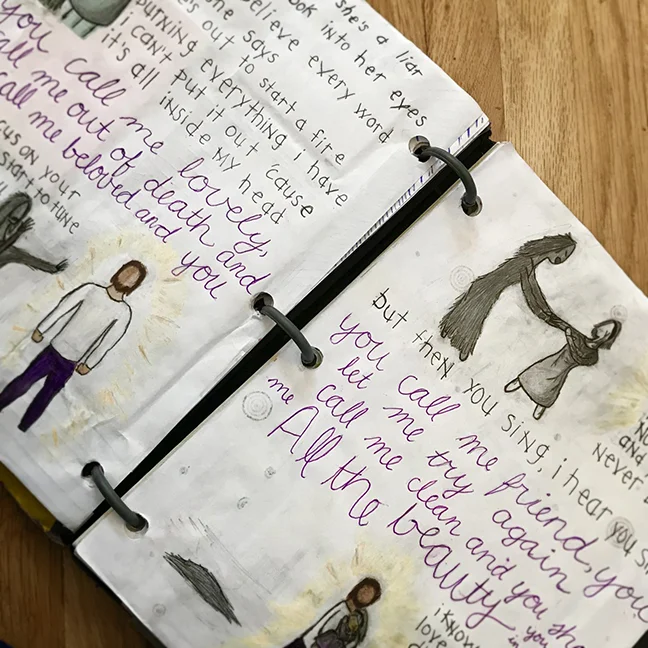 she's a liar
ook into her eyes
believe every word
says
's out to start a fire
burning everything i have
i can't put it out 'cause
it's all inside my head
you call me lovely,
all me out of death and
call me beloved and you
cus on your
start to tune
but then you sing, i hear you si
you call me friend, you
let me try again
call me clean and you sh
me
All the beauty
and
never
i know
love